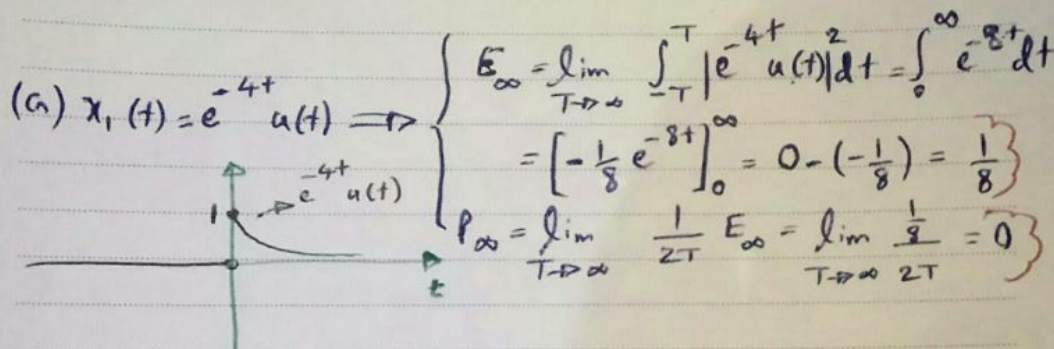 (a) x₁(t) = e^{-4t} u(t) ⟹ { E_∞ = lim_{T→∞} ∫_{-T}^{T} |e^{-4t} u(t)|² dt = ∫_0^∞ e^{-8t} dt
= [-1/8 e^{-8t}]_0^∞ = 0 - (-1/8) = 1/8 }
P_∞ = lim_{T→∞} 1/2T E_∞ = lim_{T→∞} (1/8)/2T = 0 }
1 → e^{-4t} u(t)
t